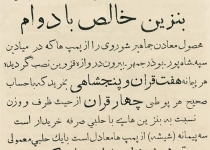 بنزین خالص با دوام
محصول معادن جماهیر شوروی را از پمپ ها که در میادین
سپه شاپور، بوذرجمهر، بیرون دروازه قزوین نصب گردیده
هر پیمانه هفت قران و پنجشاهی بخرید که با حساب
صحیح هر پوطی چهار قران از حیث ظرف و وزن
نسبت به بنزین هایی با حلبی صرفه خریدار است
سه پیمانه (شیشه) از پمپ ها معادل است با یک حلبی معمولی